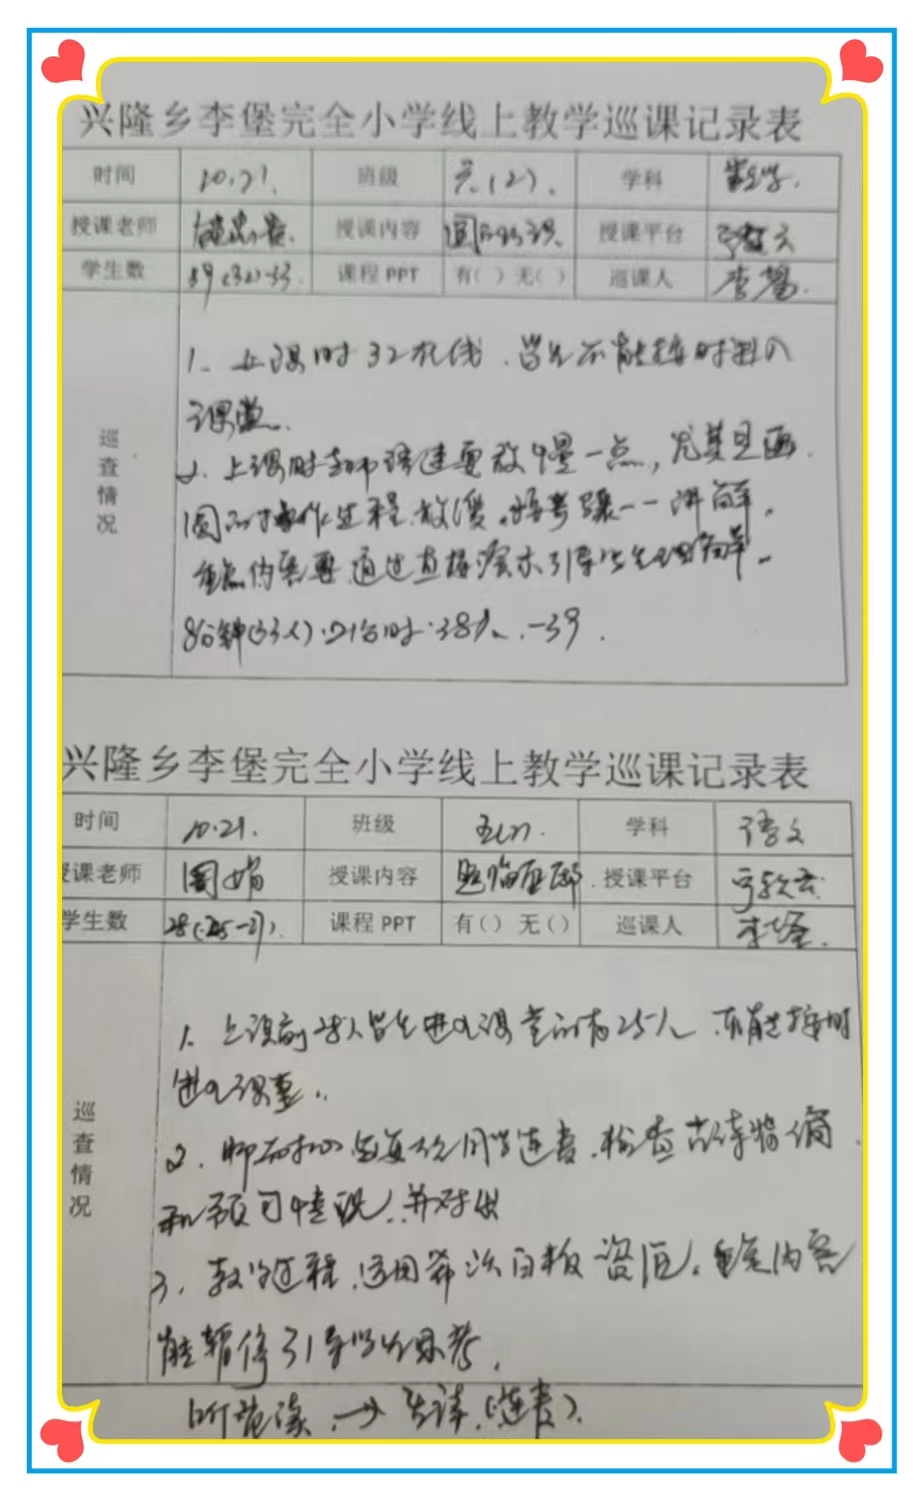 兴隆乡李堡完全小学线上教学巡课记录表
时间 10.21. 班级 六.(2). 学科 数学.
授课老师 授课内容 圆的认识. 授课平台
学生数 39(32)-33 课程PPT 有( ) 无( ) 巡课人 李
巡查情况
1. 上课时32在线.学生不能按时进入
课堂.
2. 上课时老师语速要放慢一点,尤其是画
圆的操作过程.放慢.步骤一一讲解.
重点内容要通过直接演示引导学生理解.
8分钟(33人). 时.38人.-39.
兴隆乡李堡完全小学线上教学巡课记录表
时间 10.21. 班级 五(1). 学科 语文
授课老师 周娟 授课内容 题临安邸. 授课平台
学生数 28(25-27). 课程PPT 有( ) 无( ) 巡课人 李
巡查情况
1. 上课前28人学生进入课堂的有25人.不能按时
进入课堂.
2. 同学连麦.检查古诗
和预习情况.并对
3. 教学过程.运用希沃白板 资源.重点内容
能暂停引导学生思考.
听范读.→ 生读.(连麦).